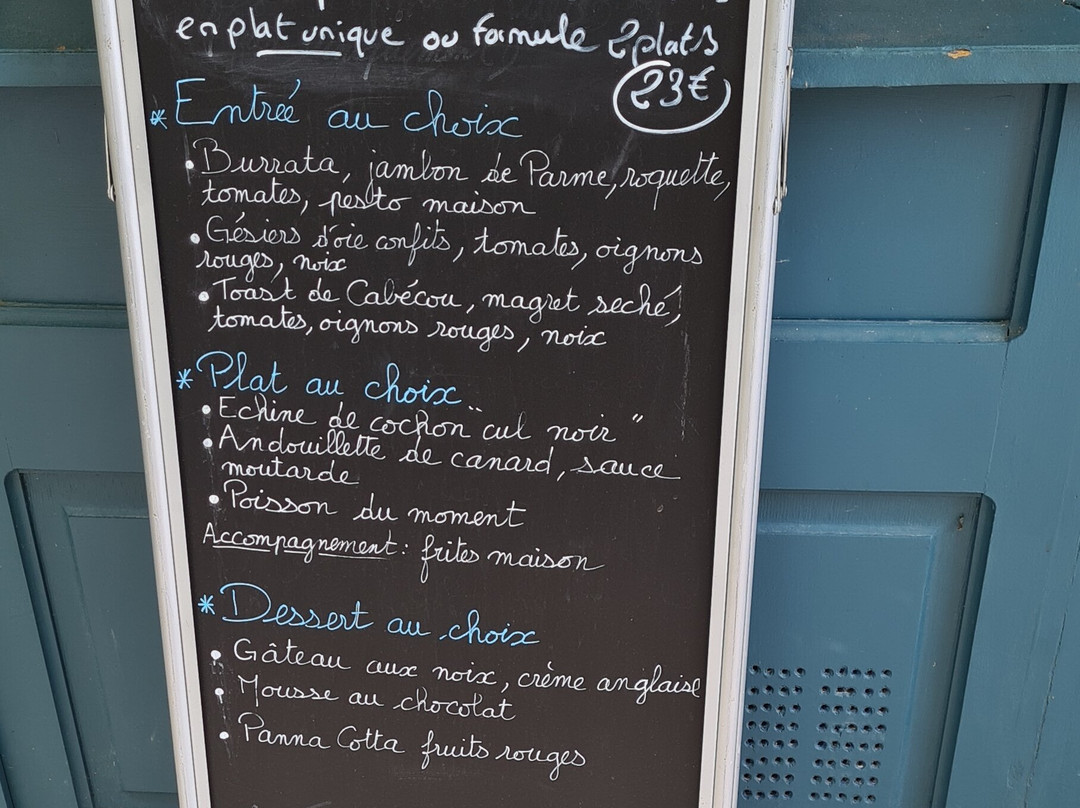 en plat unique ou formule 2 plats
23€
* Entrée au choix
• Burrata, jambon de Parme, roquette,
tomates, pesto maison
• Gésiers d'oie confits, tomates, oignons
rouges, noix
• Toast de Cabécou, magret seché,
tomates, oignons rouges, noix
* Plat au choix
• Echine de cochon "cul noir"
• Andouillette de canard, sauce
moutarde
• Poisson du moment
Accompagnement : frites maison
* Dessert au choix
• Gâteau aux noix, crème anglaise
• Mousse au chocolat
• Panna Cotta fruits rouges